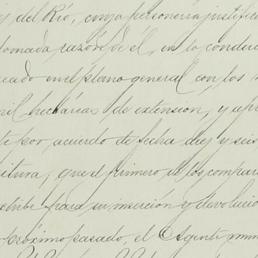 y del Rio, cuya personería justific
tomada razón de él, en lo conduc
cado en el plano general con los
mil hectáreas de extensión, y apr
te por acuerdo de fecha diez y seis
itura, que el primero de los compar
para su inserción y devolució
próximo pasado, el Agente